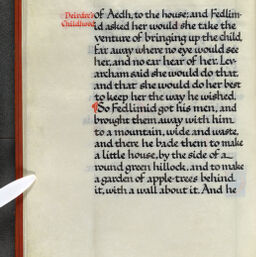 Deirdre's
Childhood
of Aedh, to the house; and Fedlim-
id asked her would she take the
venture of bringing up the child,
far away where no eye would see
her, and no ear hear of her. Lev-
archam said she would do that,
and that she would do her best
to keep her the way he wished.
¶So Fedlimid got his men, and
brought them away with him
to a mountain, wide and waste,
and there he bade them to make
a little house, by the side of a
round green hillock, and to make
a garden of apple-trees behind
it, with a wall about it. And he